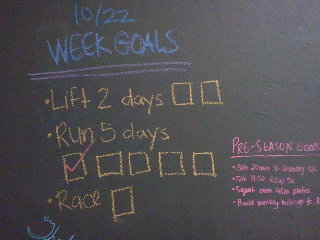 10/22
WEEK GOALS
• Lift 2 days
• Run 5 days
• Race
PRE-SEASON GOALS
• Sub 20min X-Country 5K
• Sub 19:30 Road 5K
• Squat over 45lb plates
• Build weekly mileage to